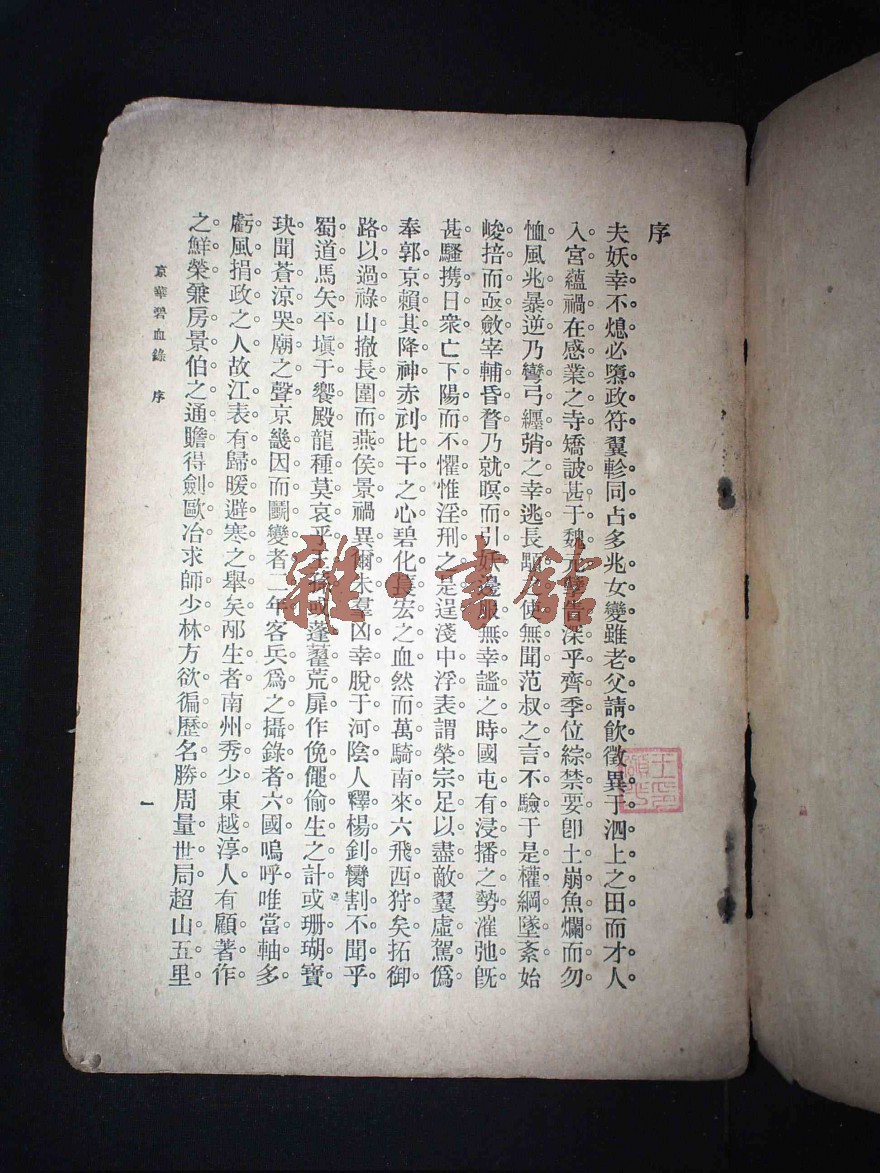 序
夫妖幸不熄必隳政符翼軫同占多兆女變雖老父請飲徵異于泗上之田而才人
入宮蘊禍在感業之寺矯詖甚于魏元孽告深乎齊季位綜禁要卽土崩魚爛而勿
恤風兆暴逆乃彎弓纒弰之幸逃長驅使無聞范叔之言不驗于是權綱墜紊始
峻掊而亟斂宰輔昏瞀乃就暝而引妖邊服無幸謐之時國屯有浸播之勢漼弛旣
甚騷攜日衆亡下陽而不懼惟淫刑之是逞淺中浮表謂榮宗足以盡敵翼虛駕僞
奉郭京賴其降神赤刳比干之心碧化萇宏之血然而萬騎南來六飛西狩矣拓御
路以過祿山撤長圍而燕侯景禍異爾朱羣凶幸脫于河陰人釋楊釗臠割不聞乎
蜀道馬矢平塡于饗殿龍種莫哀乎王孫或蓬藋荒扉作俛僶偷生之計或珊瑚寶
玦聞蒼涼哭廟之聲京畿因而鬭變者二年客兵爲之攝錄者六國嗚呼唯當軸多
虧風捐政之人故江表有歸暖避寒之舉矣邴生者南州秀少東越淳人有顧著作
之鮮榮兼房景伯之通贍得劍歐冶求師少林方欲徧歷名勝周量世局超山五里
京華碧血錄 序
一
雜·書館